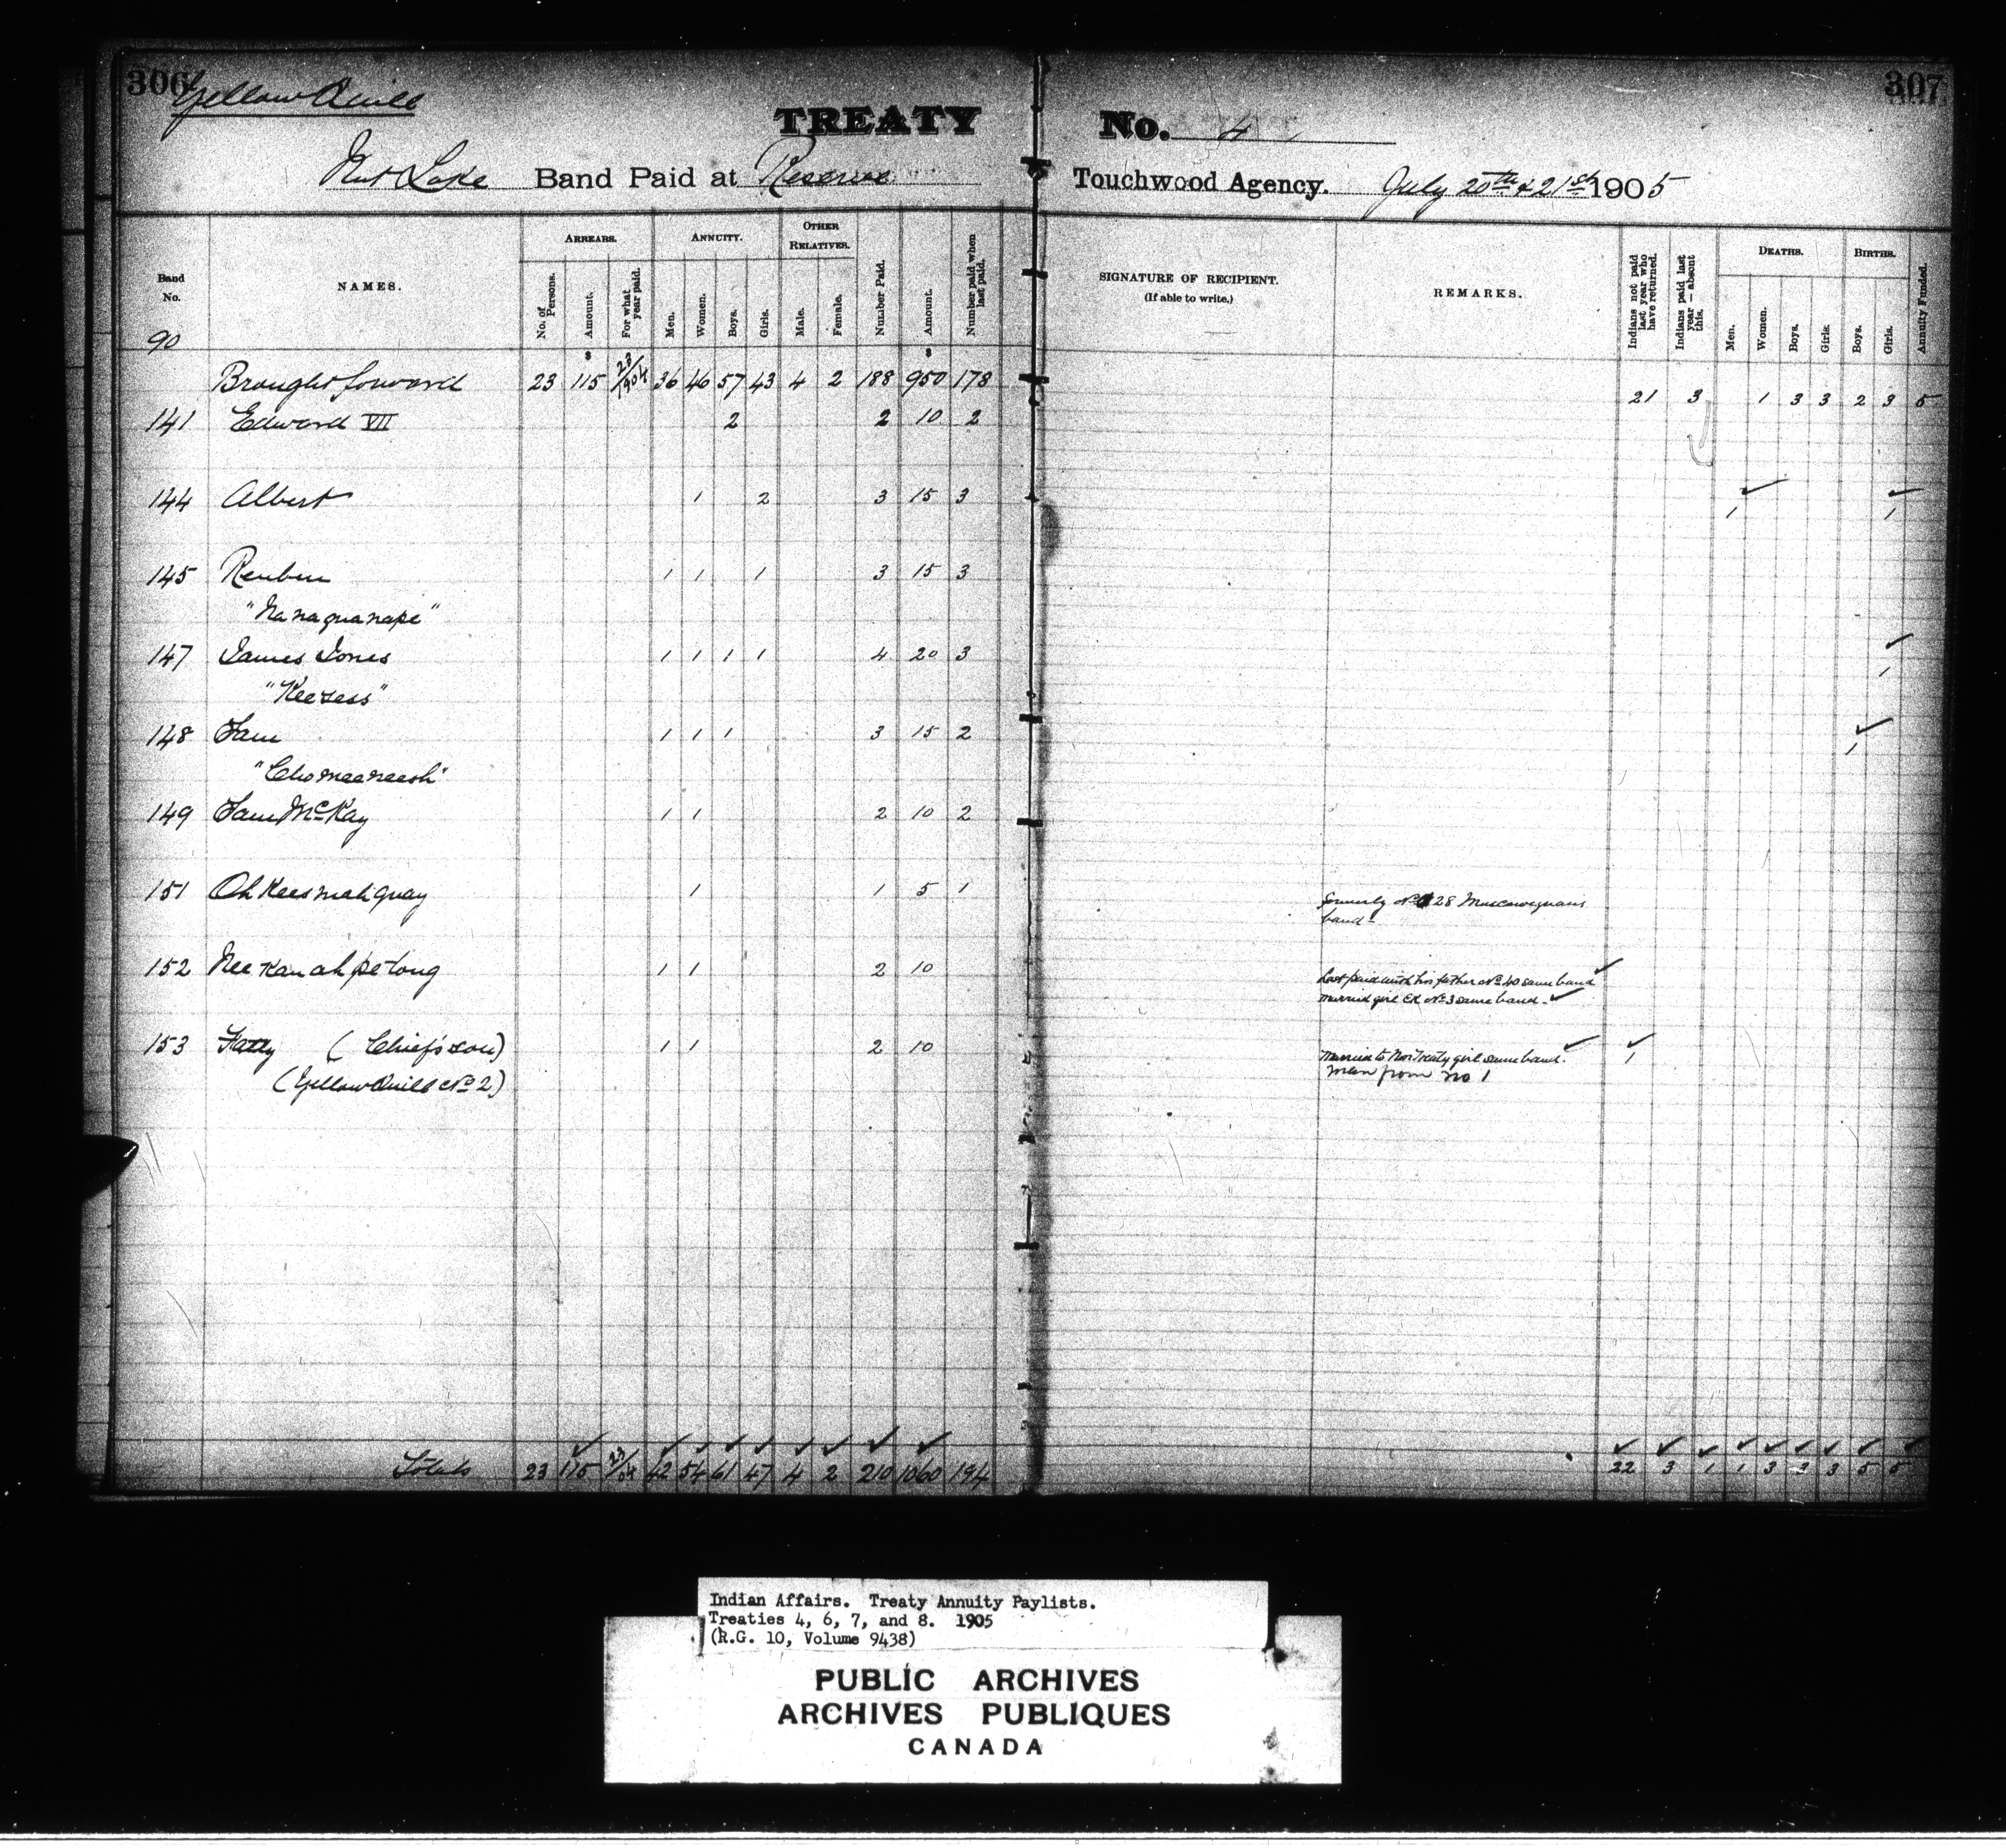 306 307
Yellow Quill
TREATY No. 4
Nut Lake Band Paid at Reserve Touchwood Agency. July 20th & 21st 1905
Band No. NAMES. ARREARS. No. of Persons. Amount. For what year paid. ANNUITY. Men. Women. Boys. Girls. OTHER RELATIVES. Male. Female. Number Paid. Amount. Number paid when last paid. SIGNATURE OF RECIPIENT. (If able to write.) REMARKS. Indians not paid last year who have returned. Indians paid last year — absent this. DEATHS. Men. Women. Boys. Girls. BIRTHS. Boys. Girls. Annuity Funded.
90
$ $
Brought forward 23 115 23/1904 36 46 57 43 4 2 188 950 178 21 3 1 3 3 2 3 5
141 Edward VII 2 2 10 2
144 Albert 1 2 3 15 3 1 1
145 Reuben 1 1 1 3 15 3
"Nanaquanape"
147 James Jones 1 1 1 1 4 20 3 1
"Keesess"
148 Sam 1 1 1 3 15 2 1
"Chomeeneesh"
149 Sam McKay 1 1 2 10 2
151 Oh Kees mah quay 1 1 5 1 formerly No 28 Muscowequans
band -
152 Nee Kan ah pe tong 1 1 2 10 Last paid with his father No 40 same band
married girl Ex No 3 same band -
153 Fatty (Chief's son) 1 1 2 10 Married to Non Treaty girl same band. 1
(Yellow Quill No 2) man from no 1
Totals 23 115 23/04 42 54 61 47 4 2 210 1060 194 22 3 1 1 3 3 3 5 5
Indian Affairs. Treaty Annuity Paylists.
Treaties 4, 6, 7, and 8. 1905
(R.G. 10, Volume 9438)
PUBLIC ARCHIVES
ARCHIVES PUBLIQUES
CANADA